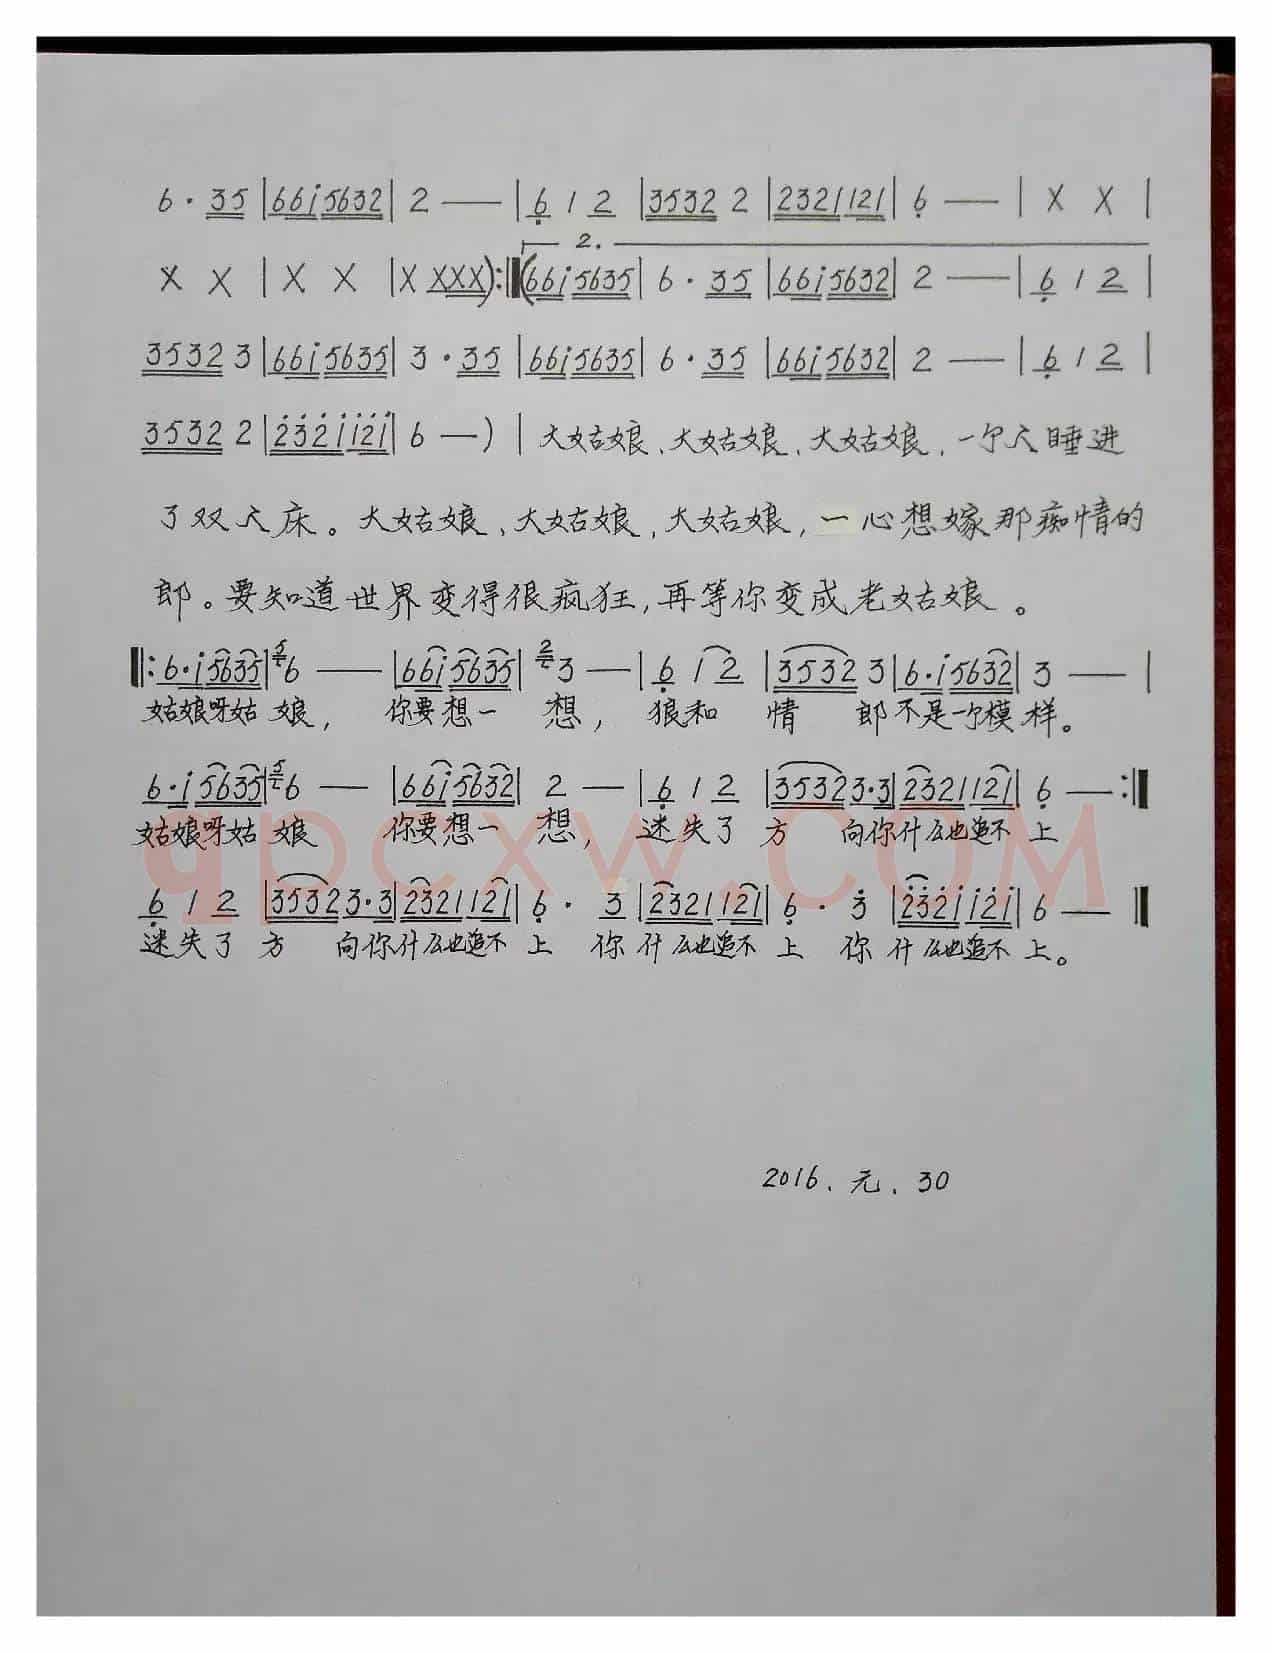 6 · 35 | 66i 5632 | 2 — | 6 1 2 | 3532 2 | 2321 121 | 6 — | X X |
2.
X X | X X | X XXX ) :‖ ( 66i 5635 | 6 · 35 | 66i 5632 | 2 — | 6 1 2 |
3532 3 | 66i 5635 | 3 · 35 | 66i 5635 | 6 · 35 | 66i 5632 | 2 — | 6 1 2 |
3532 2 | 2321 121 | 6 — ) | 大姑娘、大姑娘、大姑娘,一个人睡进
了双人床。大姑娘、大姑娘,大姑娘,一心想嫁那痴情的
郎。要知道世界变得很疯狂,再等你变成老姑娘。
‖: 6·i 5635 | 5 6 — | 66i 5635 | 2 3 — | 6 1 2 | 3532 3 | 6·i 5632 | 3 — |
姑娘呀姑 娘, 你要想一 想, 狼和 情 郎不是一个模样。
6·i 5635 | 5 6 — | 66i 5632 | 2 — | 6 1 2 | 3532 3·3 | 2321 121 | 6 — :‖
姑娘呀姑 娘 你要想一 想, 迷失了 方 向你什么也追不 上
qpcxw.COM
6 1 2 | 3532 3·3 | 2321 121 | 6 · 3 | 2321 121 | 6 · 3 | 2321 121 | 6 — ‖
迷失了 方 向你什么也追不 上 你 什么也追不 上 你 什么也追不 上。
2016、元、30